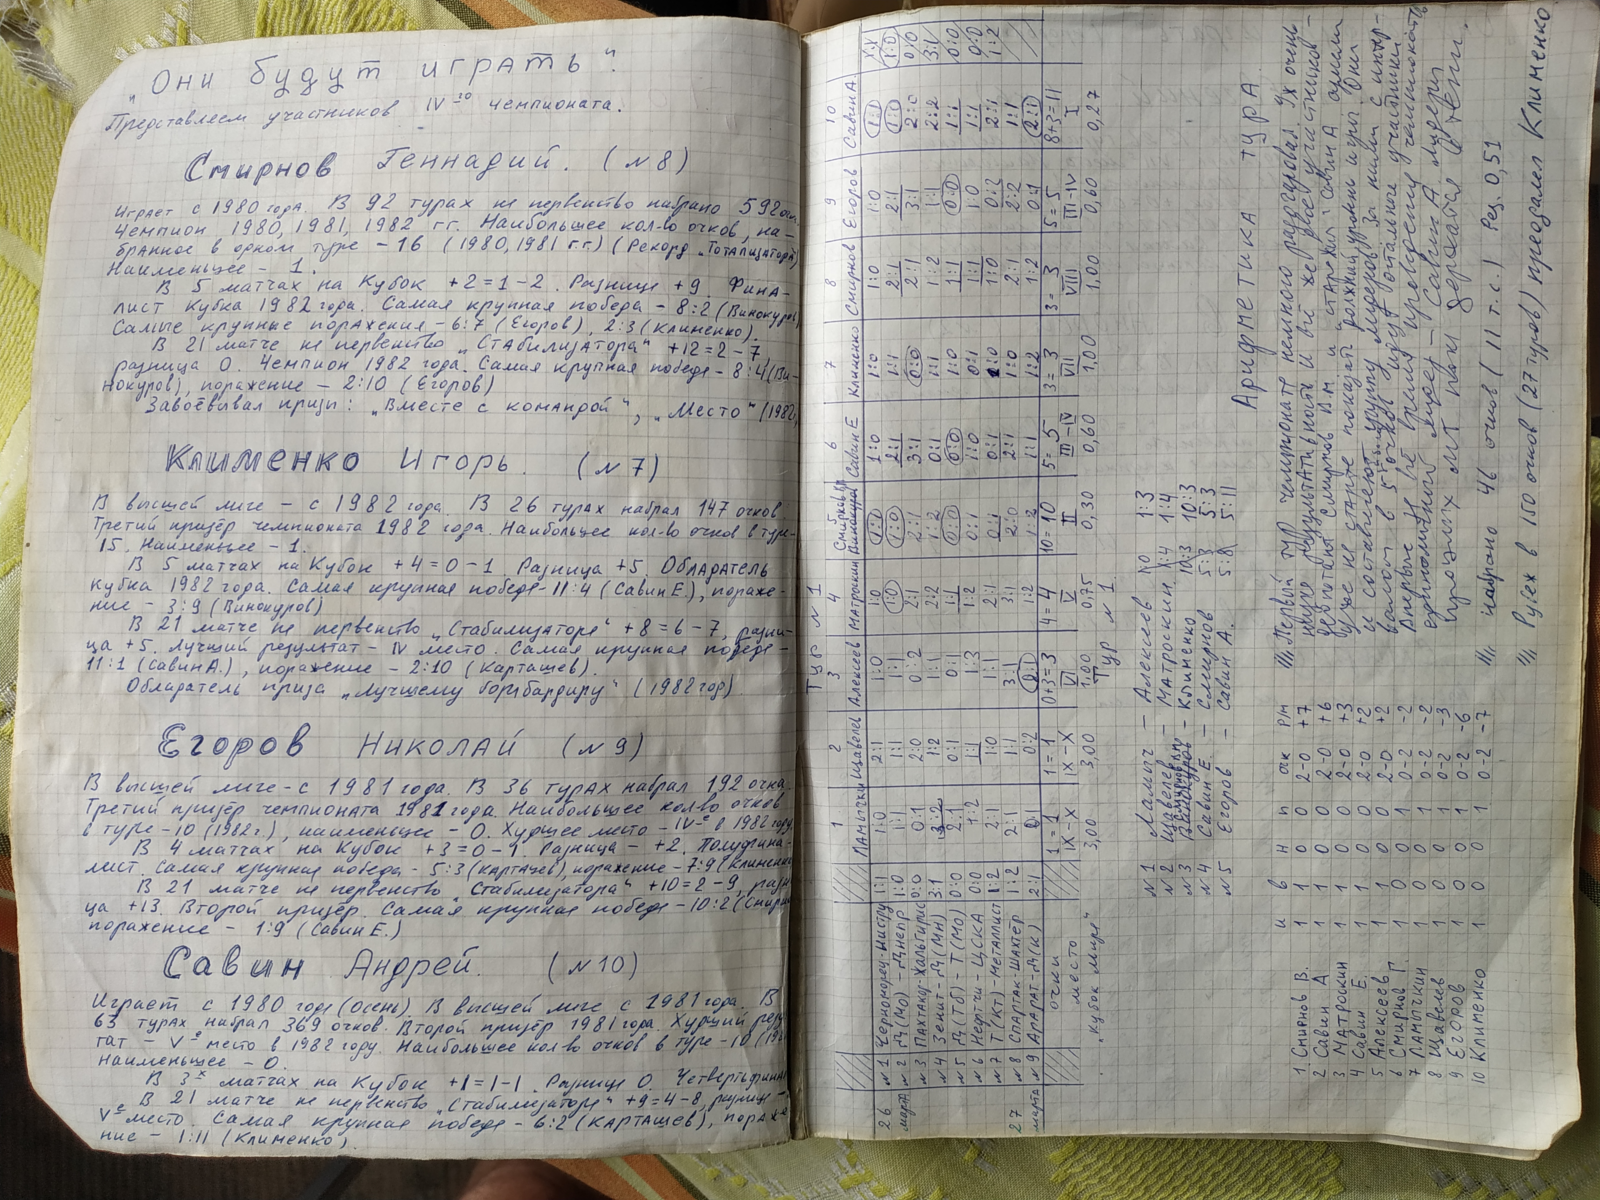 „Они будут играть".
Представляем участников IV-го чемпионата.
Смирнов Геннадий. (№8)
Играет с 1980 года. В 92 турах не первенство набрано 592 очк.
Чемпион 1980, 1981, 1982 гг. Наибольшее кол-во очков, на-
бранное в одном туре - 16 (1980, 1981 гг.) (Рекорд „Тотализатора")
Наименьшее - 1.
В 5 матчах на Кубок +2=1-2. Разница +9. Фина-
лист Кубка 1982 года. Самая крупная победа - 8:2 (Винокуров)
Самые крупные поражения - 6:7 (Егоров), 2:3 (Клименко).
В 21 матче не первенство „Стабилизатора" +12=2-7,
разница 0. Чемпион 1982 года. Самая крупная победа - 8:4 (Ви-
нокуров), поражение - 2:10 (Егоров)
Завоёвывал призы: „Вместе с командой", „Место" (1982,
Клименко Игорь. (№7)
В высшей лиге - с 1982 года. В 26 турах набрал 147 очков.
Третий призёр чемпионата 1982 года. Наибольшее кол-во очков в туре-
15. Наименьшее - 1.
В 5 матчах на Кубок +4=0-1. Разница +5. Обладатель
Кубка 1982 года. Самая крупная победа - 11:4 (Савин Е.), пораже-
ние - 3:9 (Винокуров)
В 21 матче не первенство „Стабилизатора" +8=6-7, разни-
ца +5. Лучший результат - IV место. Самая крупная победа -
11:1 (Савин А.), поражение - 2:10 (Карташев).
Обладатель приза „Лучшему бомбардиру" (1982 год).
Егоров Николай (№9)
В высшей лиге - с 1981 года. В 36 турах набрал 192 очка.
Третий призёр чемпионата 1981 года. Наибольшее кол-во очков
в туре - 10 (1982 г.), наименьшее - 0. Худшее место - IV-е в 1982 году.
В 4 матчах на Кубок +3=0-1. Разница - +2. Полуфина-
лист. Самая крупная победа - 5:3 (Карташев), поражение - 7:9 (Клименко
В 21 матче не первенство „Стабилизатора" +10=2-9, разни-
ца +13. Второй призёр. Самая крупная победа - 10:2 (Смирн
поражение - 1:9 (Савин Е.)
Савин Андрей. (№10)
Играет с 1980 года (осень). В высшей лиге с 1981 года. В
63 турах набрал 369 очков. Второй призёр 1981 года. Худший резу
тат - V-е место в 1982 году. Наибольшее кол-во очков в туре - 10 (198
Наименьшее - 0.
В 3х матчах на Кубок +1=1-1. Разница 0. Четвертьфинал
В 21 матче не первенство „Стабилизатора" +9=4-8, разниц -
V-е место. Самая крупная победа - 6:2 (Карташев), пораже-
ние - 1:11 (Клименко).
Тур №1
1 2 3 4 5 6 7 8 9 10
Ламычкин Щавелев Алексеев Матроскин Смирнов В. Савин Е Клименко Смирнов Егоров Савин А. Х:У
26 марта №1 Черноморец-Нистру 1:1 1:0 2:1 1:0 1:0 1:0 1:0 1:0 1:0 1:0 1:1
№2 Д(Мо) - Днепр 1:0 1:1 1:1 1:1 1:0 1:0 2:1 1:1 2:1 2:1 1:1 1:0
№3 Пахтакор-Жальгирис 0:0 0:1 2:0 0:2 2:1 2:1 3:1 0:0 2:1 3:1 2:0 0:0
№4 Зенит - Д(Мн) 3:1 3:2 1:2 1:1 2:2 1:2 0:1 1:1 1:2 1:1 2:2 3:1
№5 Д(Тб) - Т(Мо) 0:0 2:1 0:1 0:1 1:1 0:0 0:0 1:0 1:1 0:0 1:1 0:0
№6 Нефтчи - ЦСКА 0:0 1:2 1:1 1:3 1:2 0:1 1:0 0:1 1:1 1:0 1:1 0:0
№7 Т(Кт) - Металлист 1:2 2:1 1:0 1:1 2:1 0:1 0:1 1:0 1:0 0:2 2:1 1:2
27 марта №8 Спартак-Шахтёр 1:2 2:1 1:1 3:1 3:1 2:0 2:1 1:0 2:1 2:2 1:1
№9 Арарат - Д(К) 2:1 0:2 2:1 1:2 1:2 1:1 1:2 1:2 0:1 2:1
очки 1=1 1=1 0+3=3 4=4 10=10 5=5 3=3 3=3 5=5 8+3=11
место IX-X IX-X VI V II III-IV VII VIII III-IV I
3,00 3,00 1,00 0,75 0,30 0,60 1,00 1,00 0,60 0,27
„Кубок мира" Тур №1.
№1 Ламыч - Алексеев х0 1:3
№2 Щавелев - Матроскин х:4 1:4
№3 - Клименко 10:3 10:3
№4 Савин Е - Смирнов 5:3 5:3
№5 Егоров - Савин А. 5:8 5:11
и в н п очк РМ
1 Смирнов В. 1 1 0 0 2-0 +7
2 Савин А 1 1 0 0 2-0 +6
3 Матроскин 1 1 0 0 2-0 +3
4 Савин Е. 1 1 0 0 2-0 +2
5 Алексеев 1 1 0 0 2-0 +2
6 Смирнов Г. 1 0 0 1 0-2 -2
7 Ламычкин 1 0 0 1 0-2 -2
8 Щавелев 1 0 0 1 0-2 -3
9 Егоров 1 0 0 1 0-2 -6
10 Клименко 1 0 0 1 0-2 -7
Арифметика тура.
Первый тур чемпионат немного разочаровал. Их очень
низкая результативность и всё же двое участников -
дебютант Смирнов Вм и „старожил" Савин А
уже не стали показали должный уровень игры. Они
и составляют группу лидеров. За ними с интер-
валом в 5 очков идут остальные участники
Впервые за время проведения чемпионата
единоличный лидер - Савин А. Лидеры
прошлых лит пока держатся в тени.
набрано 46 очков (11 т.с.) Рез. 0,51
Рубеж в 150 очков (27 туров) преодолел Клименко